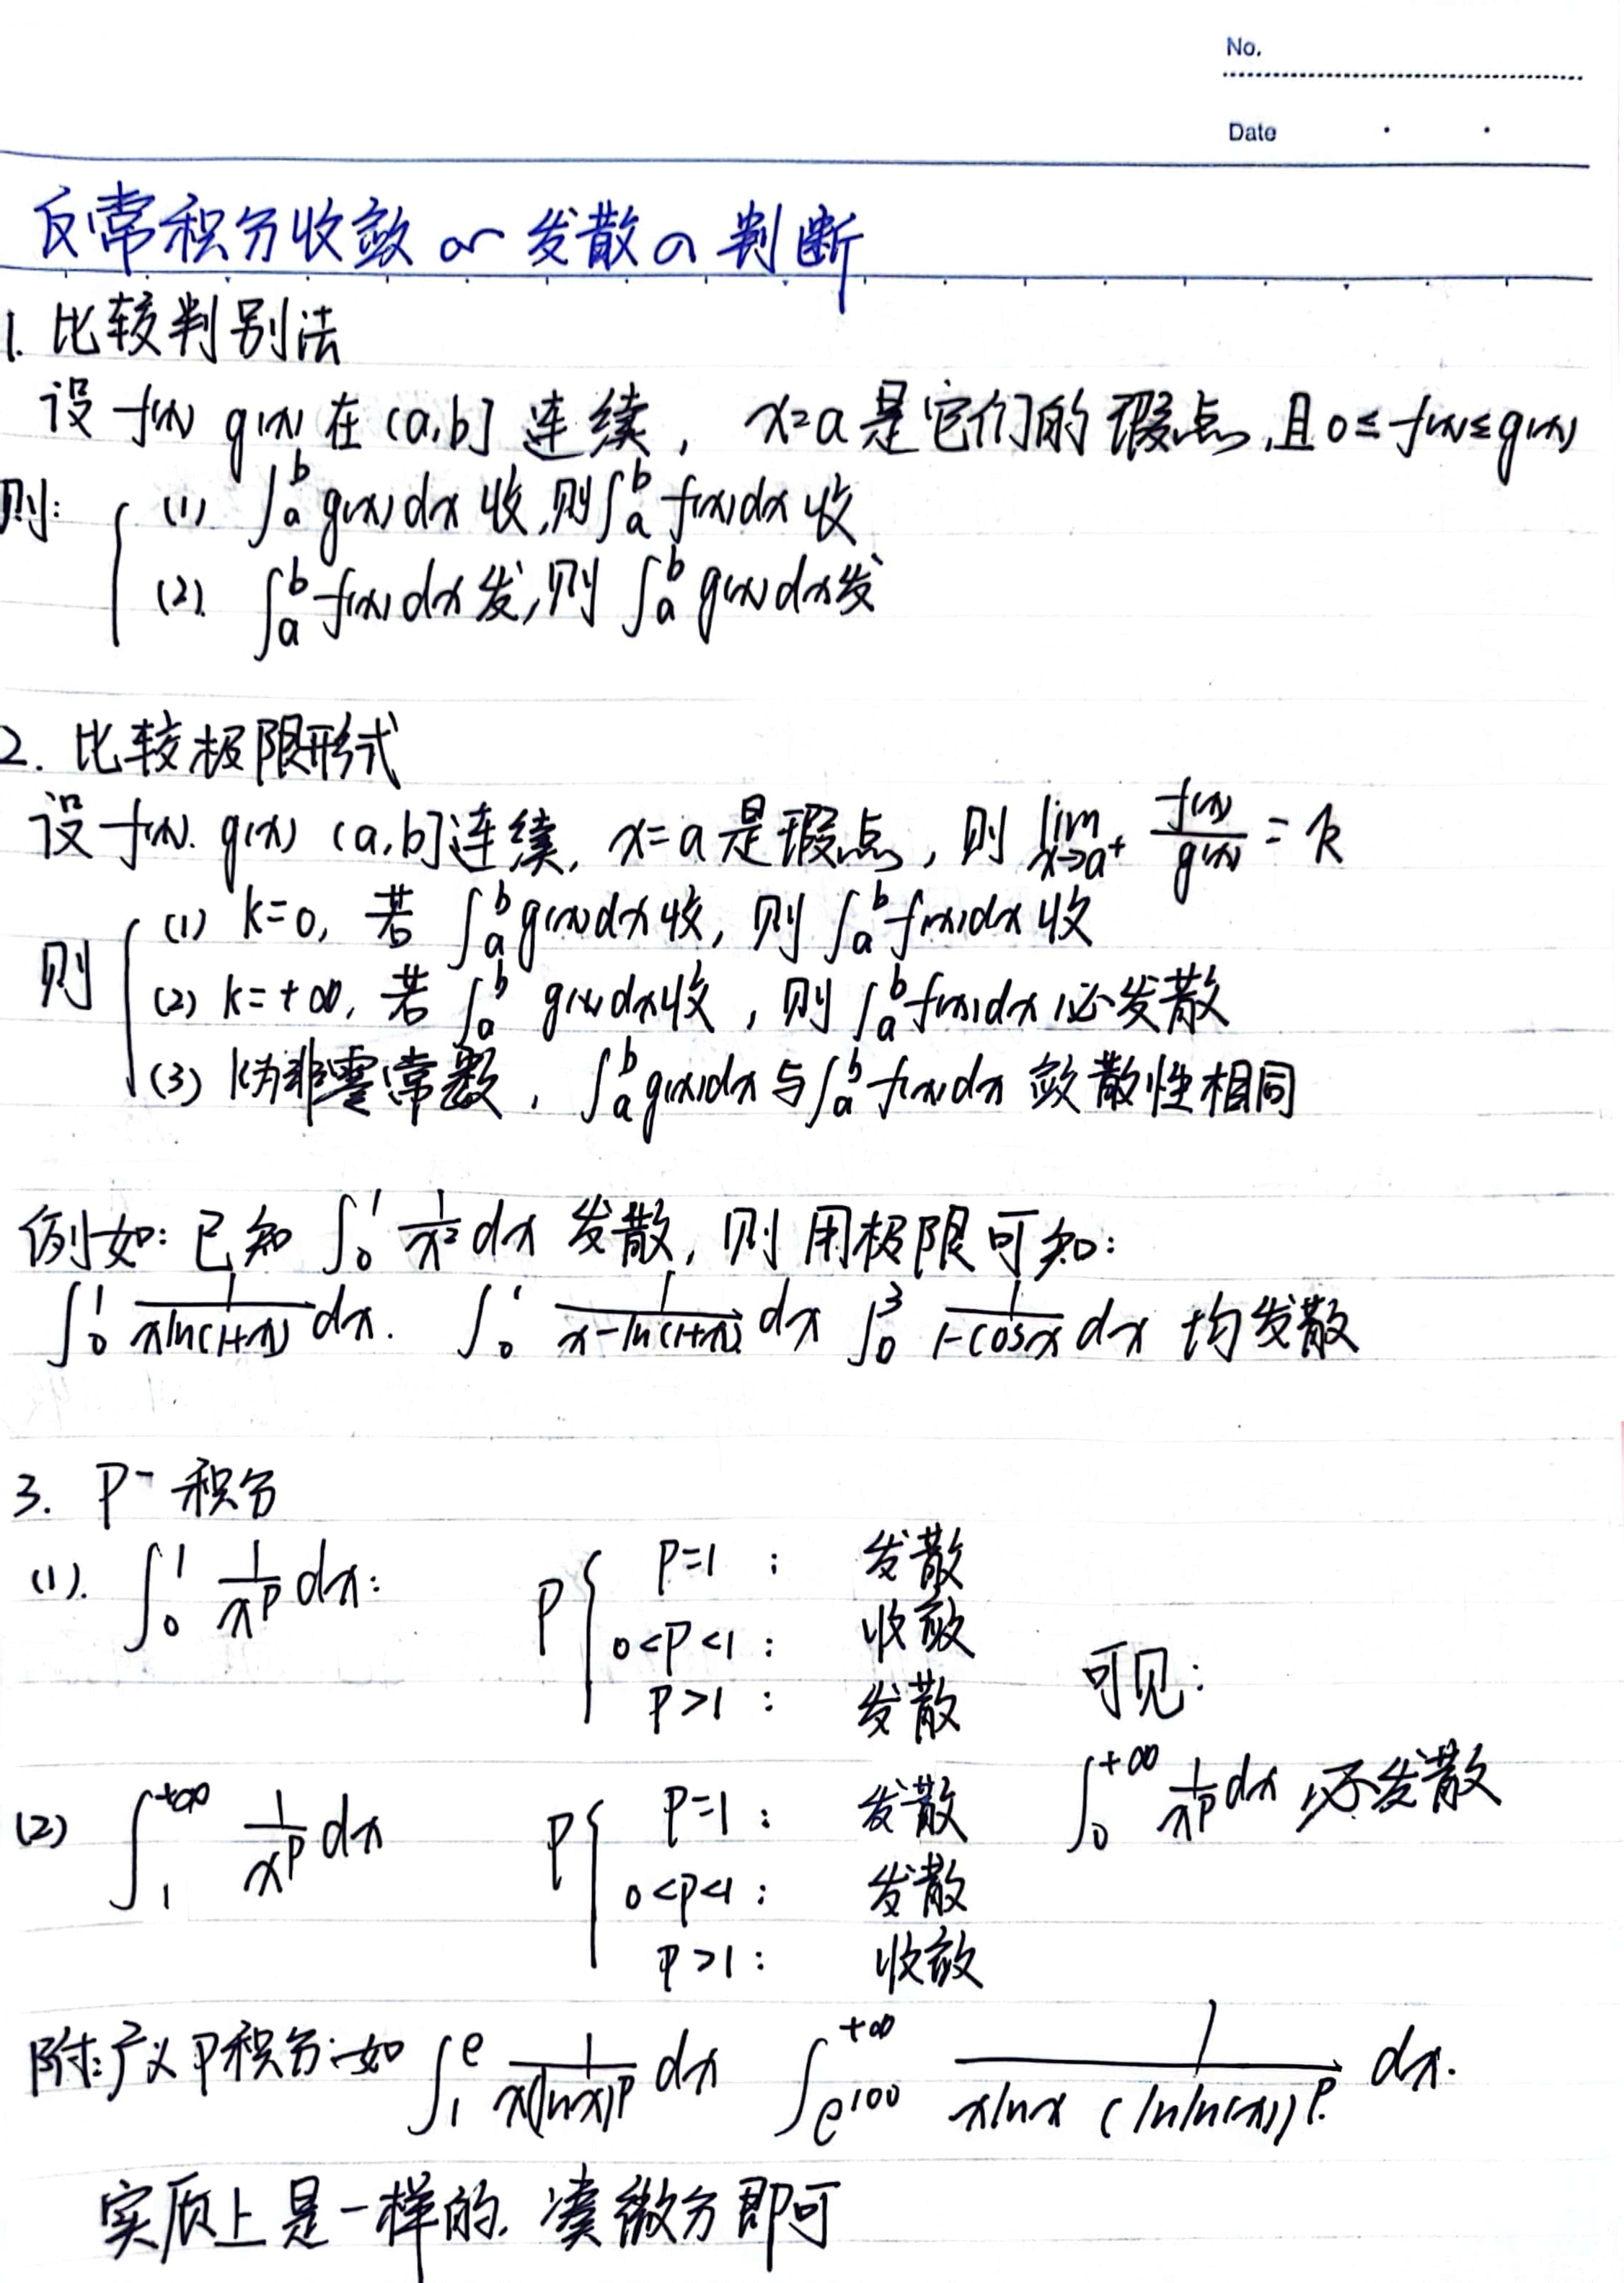 No.
Date
反常积分收敛 or 发散の判断
1. 比较判别法
设 f(x) g(x) 在 (a,b] 连续， x=a 是它们的瑕点，且 0≤f(x)≤g(x)
则：
(1) ∫_a^b g(x)dx 收，则∫_a^b f(x)dx 收
(2). ∫_a^b f(x)dx 发，则 ∫_a^b g(x)dx发
2. 比较极限形式
设 f(x). g(x) (a,b]连续, x=a 是瑕点，则 lim_{x→a+} f(x)/g(x) = k
则
(1) k=0, 若 ∫_a^b g(x)dx收，则 ∫_a^b f(x)dx 收
(2) k=+∞, 若 ∫_a^b g(x)dx收，则 ∫_a^b f(x)dx 必发散
(3) k为非零常数，∫_a^b g(x)dx 与∫_a^b f(x)dx 敛散性相同
例如：已知 ∫_0^1 1/x² dx 发散，则用极限可知：
∫_0^1 1/(xln(1+x)) dx. ∫_0^1 1/(x-ln(1+x)) dx ∫_0^3 1/(1-cosx) dx 均发散
3. P- 积分
(1). ∫_0^1 1/x^p dx: P { P=1 : 发散
0<P<1 : 收敛
P>1 : 发散
可见：
(2) ∫_1^{+∞} 1/x^p dx P { P=1 : 发散
0<P<1 : 发散
P>1 : 收敛
∫_0^{+∞} 1/x^p dx 必发散
附：广义P积分：如 ∫_1^e 1/(x(lnx)^P) dx ∫_{e^100}^{+∞} 1/(xlnx (lnln(x))^P.) dx.
实质上是一样的. 凑微分即可